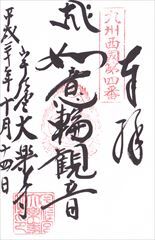 奉拝
九州西国第四番
如意輪観音
大楽寺
平成二十年十月十四日